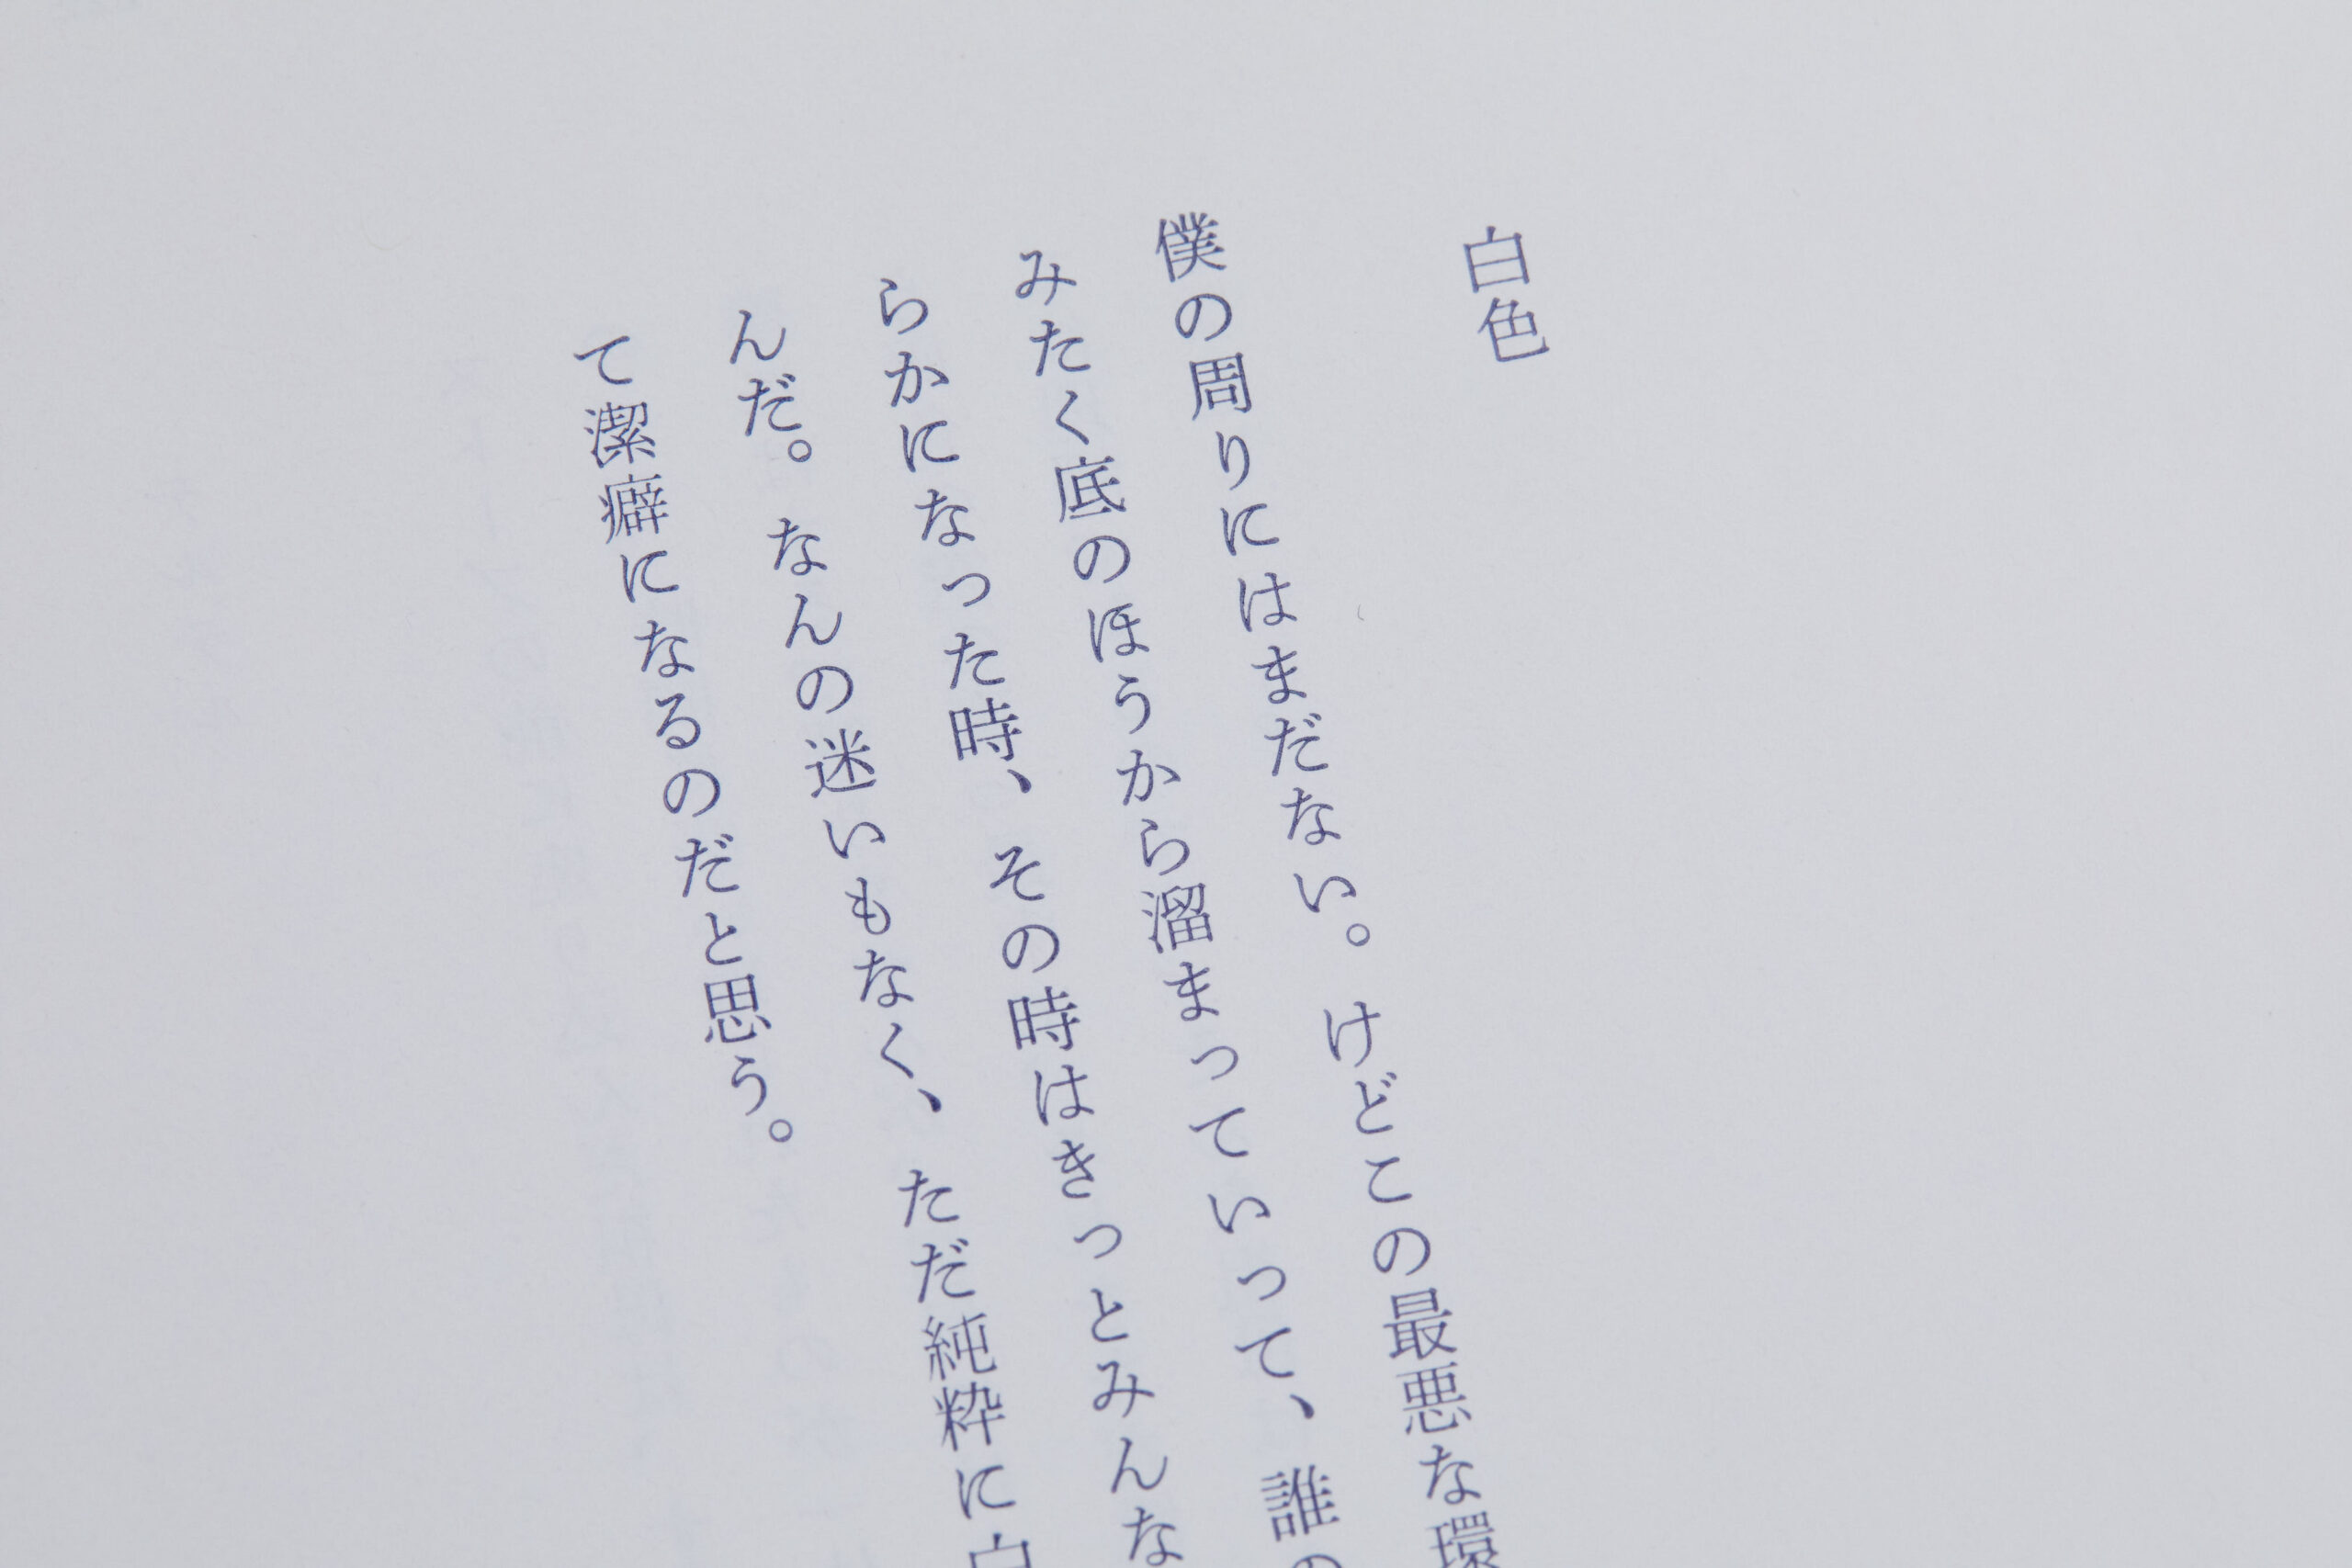 白色
僕の周りにはまだない。けどこの最悪な環
みたく底のほうから溜まっていって、誰の
らかになった時、その時はきっとみんな
んだ。なんの迷いもなく、ただ純粋に白
て潔癖になるのだと思う。